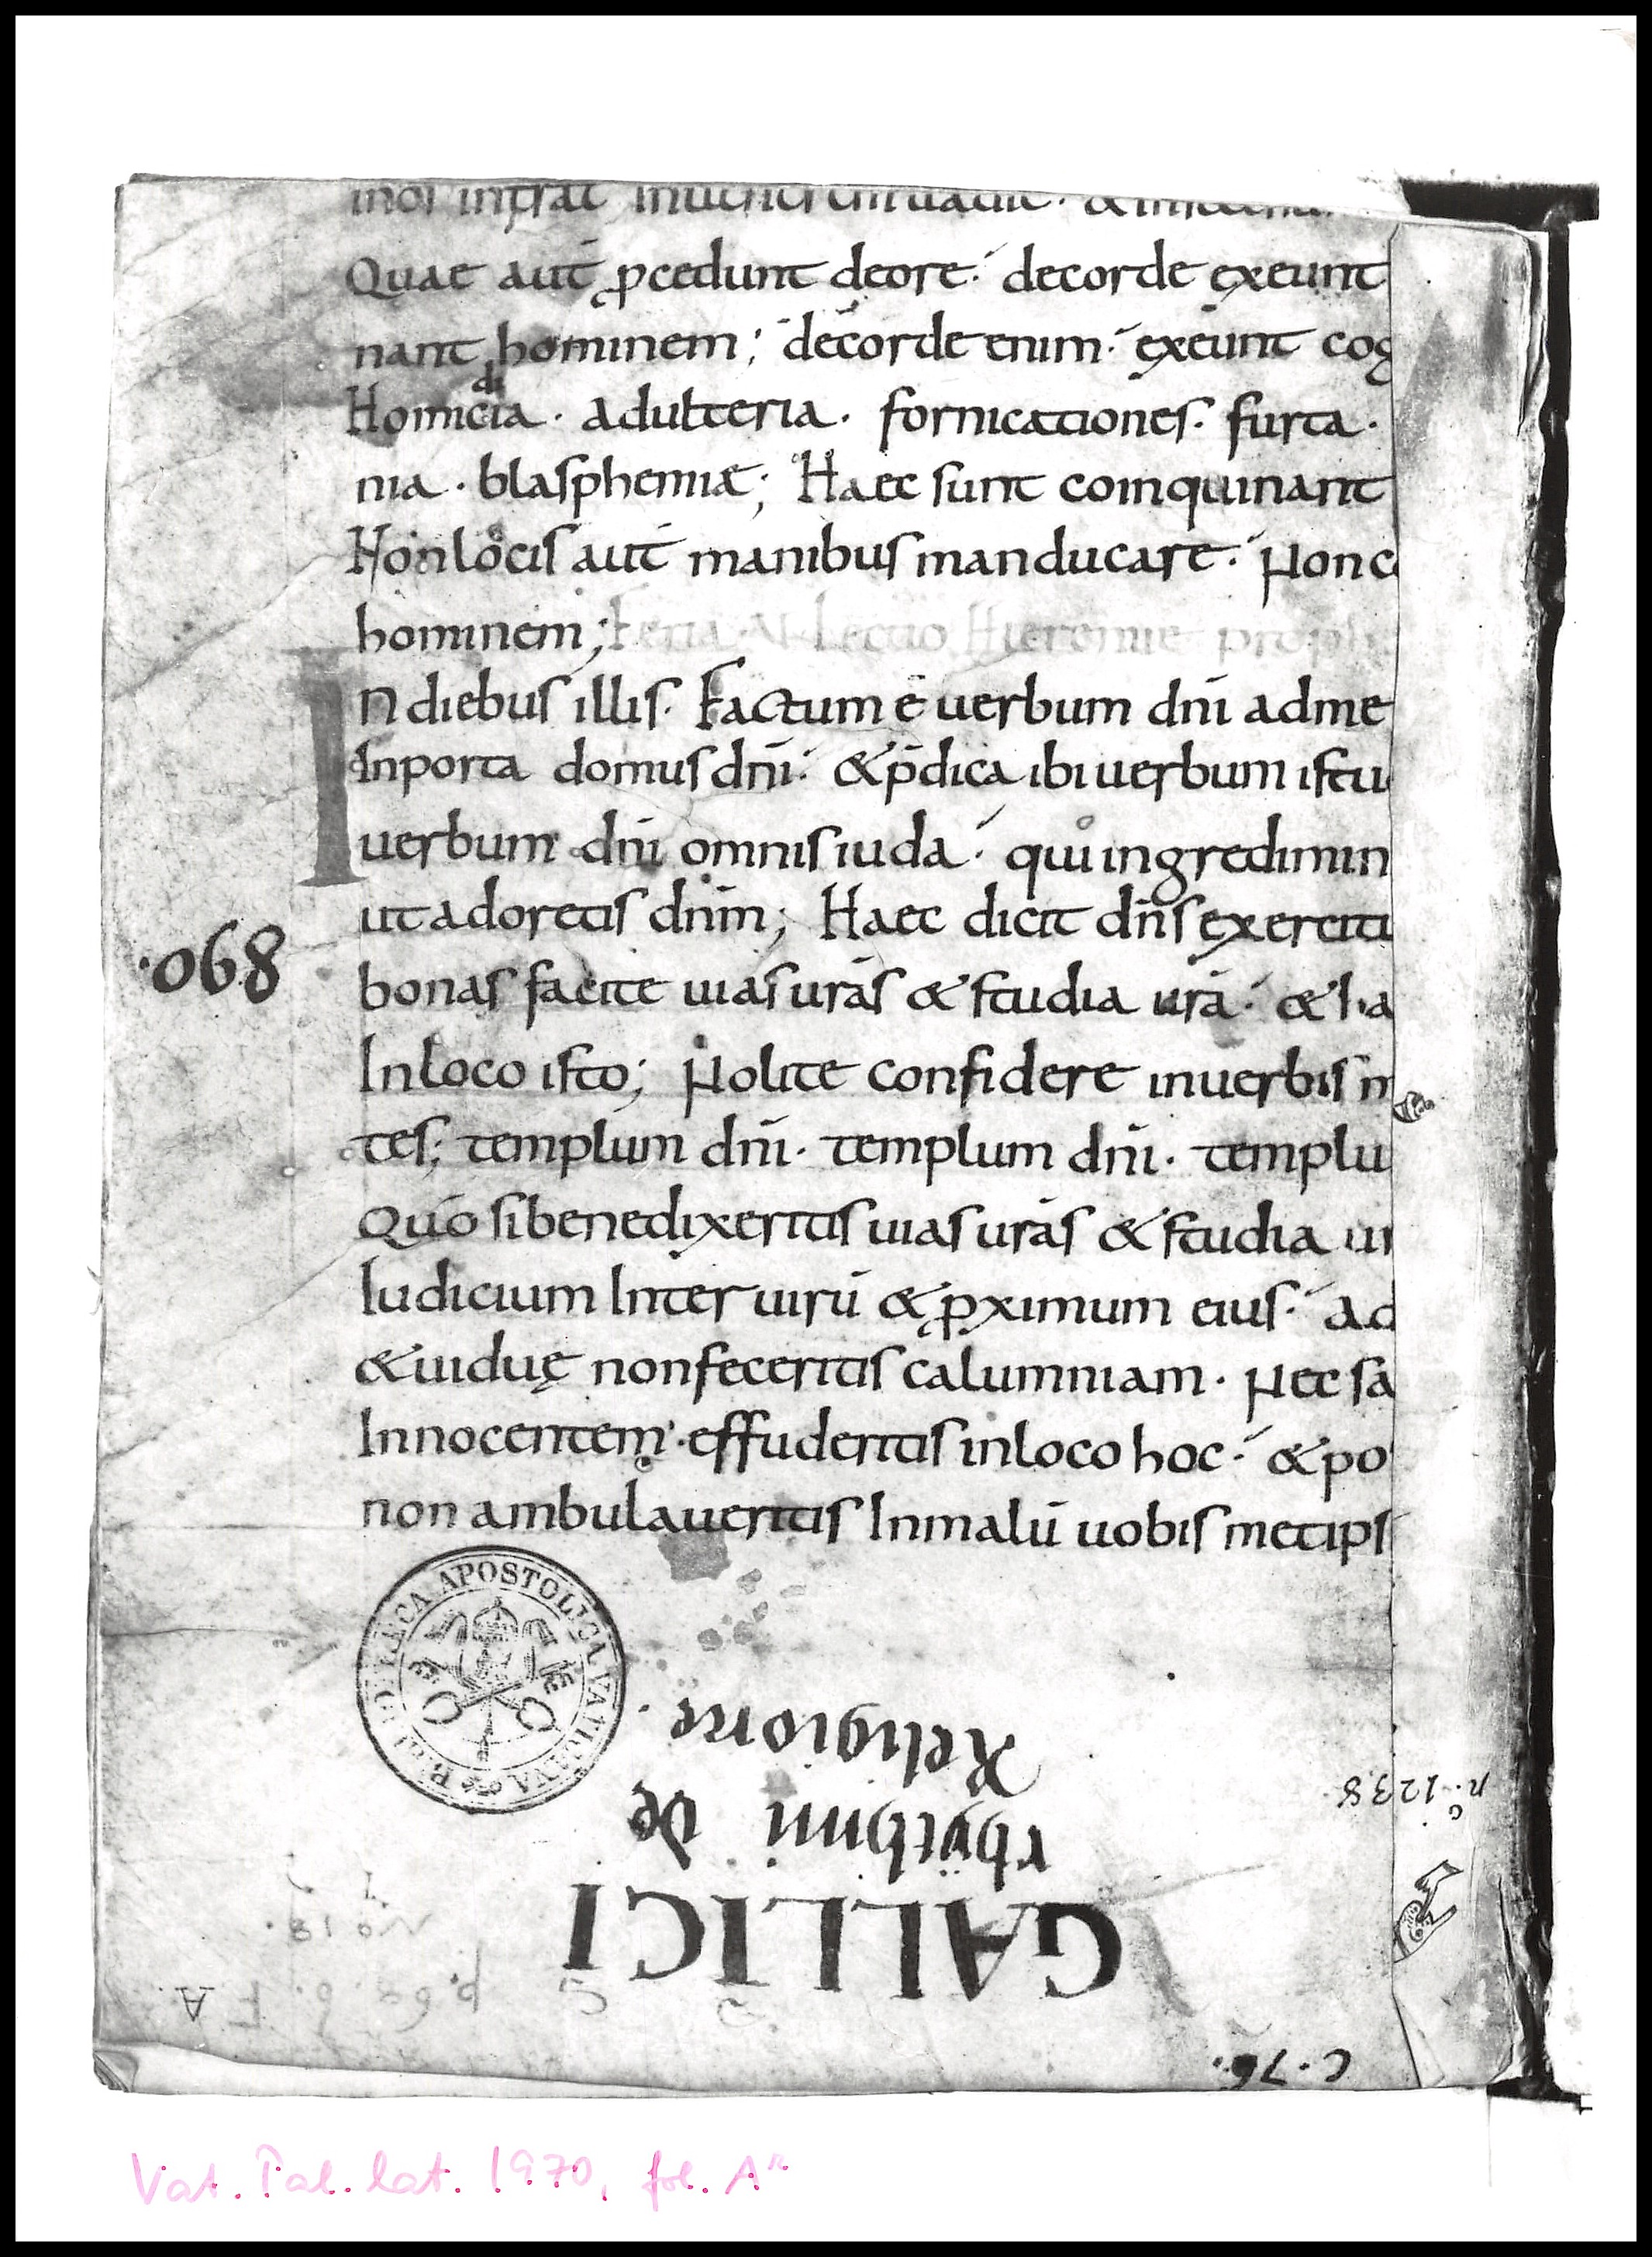 inoſ intrat
Quae aut̄ ꝓcedunt deore. decorde exeunt
nant hominem; decorde enim. exeunt cog
Homicidia. adulteria. fornicationes. furta.
nia. blasphemiae; Haec sunt coinquinant
Nonlocis aut̄ manibus manducare. Non c
hominem; Feria VI Lectio Hieremie proph
Indiebus illis. Factum ē uerbum dn̄i adme
Inporta domus dn̄i. & p̄dica ibi uerbum istu
uerbum dn̄i omnis iuda. qui ingredimin
ut adoretis dn̄m; Haec dicit dn̄s exerciti
·068
bonas facite uias ur̄as & studia ur̄a. & ha
Inloco isto; Nolite confidere inuerbis m
tes; templum dn̄i. templum dn̄i. templu
Quō si benedixeritis uias ur̄as & studia ur
Iudicium Inter uirū & ꝓximum eius. ad
& uiduę non feceritis calumniam. Nec sa
Innocentem. effuderitis inloco hoc. & po
non ambulaueritis Inmalū uobis metips
BIBLIOTECA APOSTOLICA VATICANA
GALLICI
rhÿthmi de
Religione.
nc. 1238
No 18.
p. 69. 6. F A
C. 76.
Vat. Pal. lat. 1970, fol. Ar